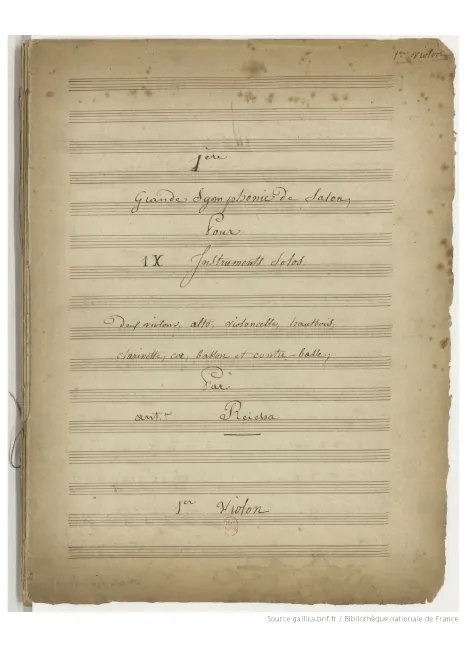 1er Violon
1ère
Grande Symphonie de Salon,
Pour
IX Instruments Solos
Deux violons, alto, violoncelle, hautbois,
clarinette, cor, basson et contre-basse;
Par
ant.ne Reicha
1er Violon
Source gallica.bnf.fr / Bibliothèque nationale de France